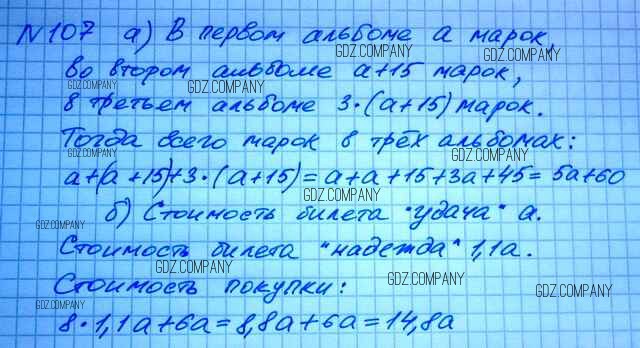 N 107 а) В первом альбоме а марок,
во втором альбоме а+15 марок,
в третьем альбоме 3·(а+15) марок.
Тогда всего марок в трёх альбомах:
а+(а+15)+3·(а+15)=а+а+15+3а+45=5а+60
б) Стоимость билета "удача" а.
Стоимость билета "надежда" 1,1а.
Стоимость покупки:
8·1,1а+6а=8,8а+6а=14,8а
GDZ.COMPANY
GDZ.COMPANY
GDZ.COMPANY
GDZ.COMPANY
GDZ.COMPANY
GDZ.COMPANY
GDZ.COMPANY
GDZ.COMPANY
GDZ.COMPANY
GDZ.COMPANY
GDZ.COMPANY
GDZ.COMPANY